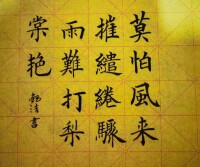 莫怕風来
摧繾綣驟
雨難打梨
棠艳
書